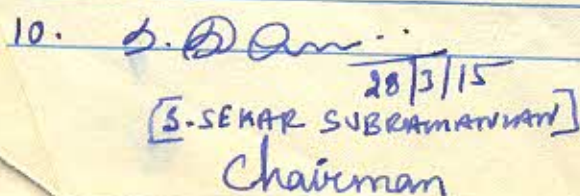 10. S.
28/3/15
[S.SEKAR SUBRAMANIAN]
Chairman